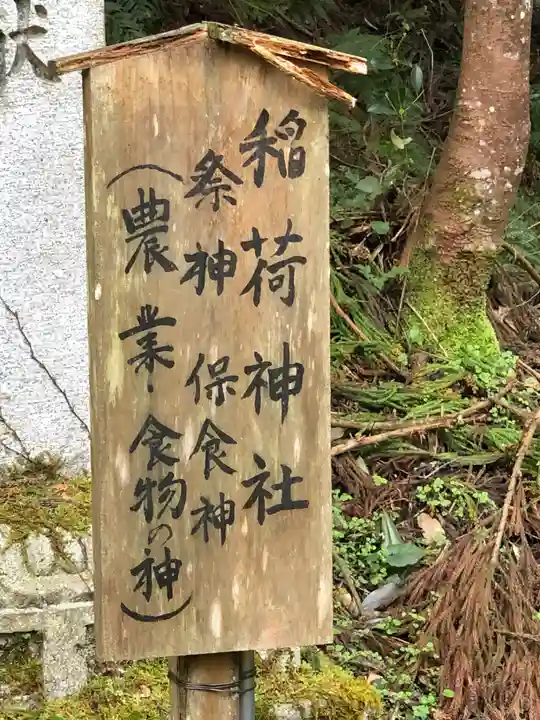 稲荷神社
祭神 保食神
(農業・食物の神)